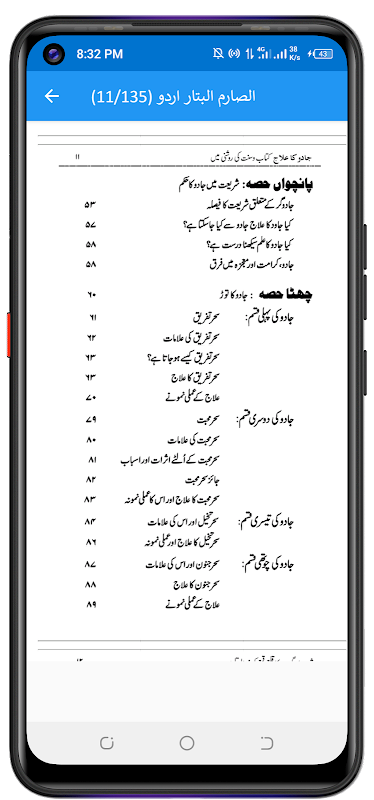 8:32 PM
4G
38
K/s
43
الصارم البتار اردو (11/135)
جادو کا علاج کتاب و سنت کی روشنی میں ۱۱
پانچواں حصہ: شریعت میں جادو کا حکم
جادوگر کے متعلق شریعت کا فیصلہ ۵۳
کیا جادو کا علاج جادو سے کیا جاسکتا ہے؟ ۵۷
کیا جادو کا علم سیکھنا درست ہے؟ ۵۸
جادو، کرامت اور معجزہ میں فرق ۵۸
چھٹا حصہ : جادو کا توڑ ۶۰
جادو کی پہلی قسم: سحر تفریق ۶۱
سحر تفریق کی علامات ۶۲
سحر تفریق کیسے ہو جاتا ہے؟ ۶۳
سحر تفریق کا علاج ۶۳
علاج کے عملی نمونے ۷۰
جادو کی دوسری قسم: سحر محبت ۷۹
سحر محبت کی علامات ۸۰
سحر محبت کے اُلٹے اثرات اور اسباب ۸۱
جائز سحر محبت ۸۲
سحر محبت کا علاج اور اس کا عملی نمونہ ۸۳
جادو کی تیسری قسم: سحر تخیل اور اس کی علامات ۸۴
سحر تخیل کا علاج اور عملی نمونہ ۸۶
جادو کی چوتھی قسم: سحر جنون اور اس کی علامات ۸۷
سحر جنون کا علاج ۸۸
علاج کے عملی نمونے ۸۹